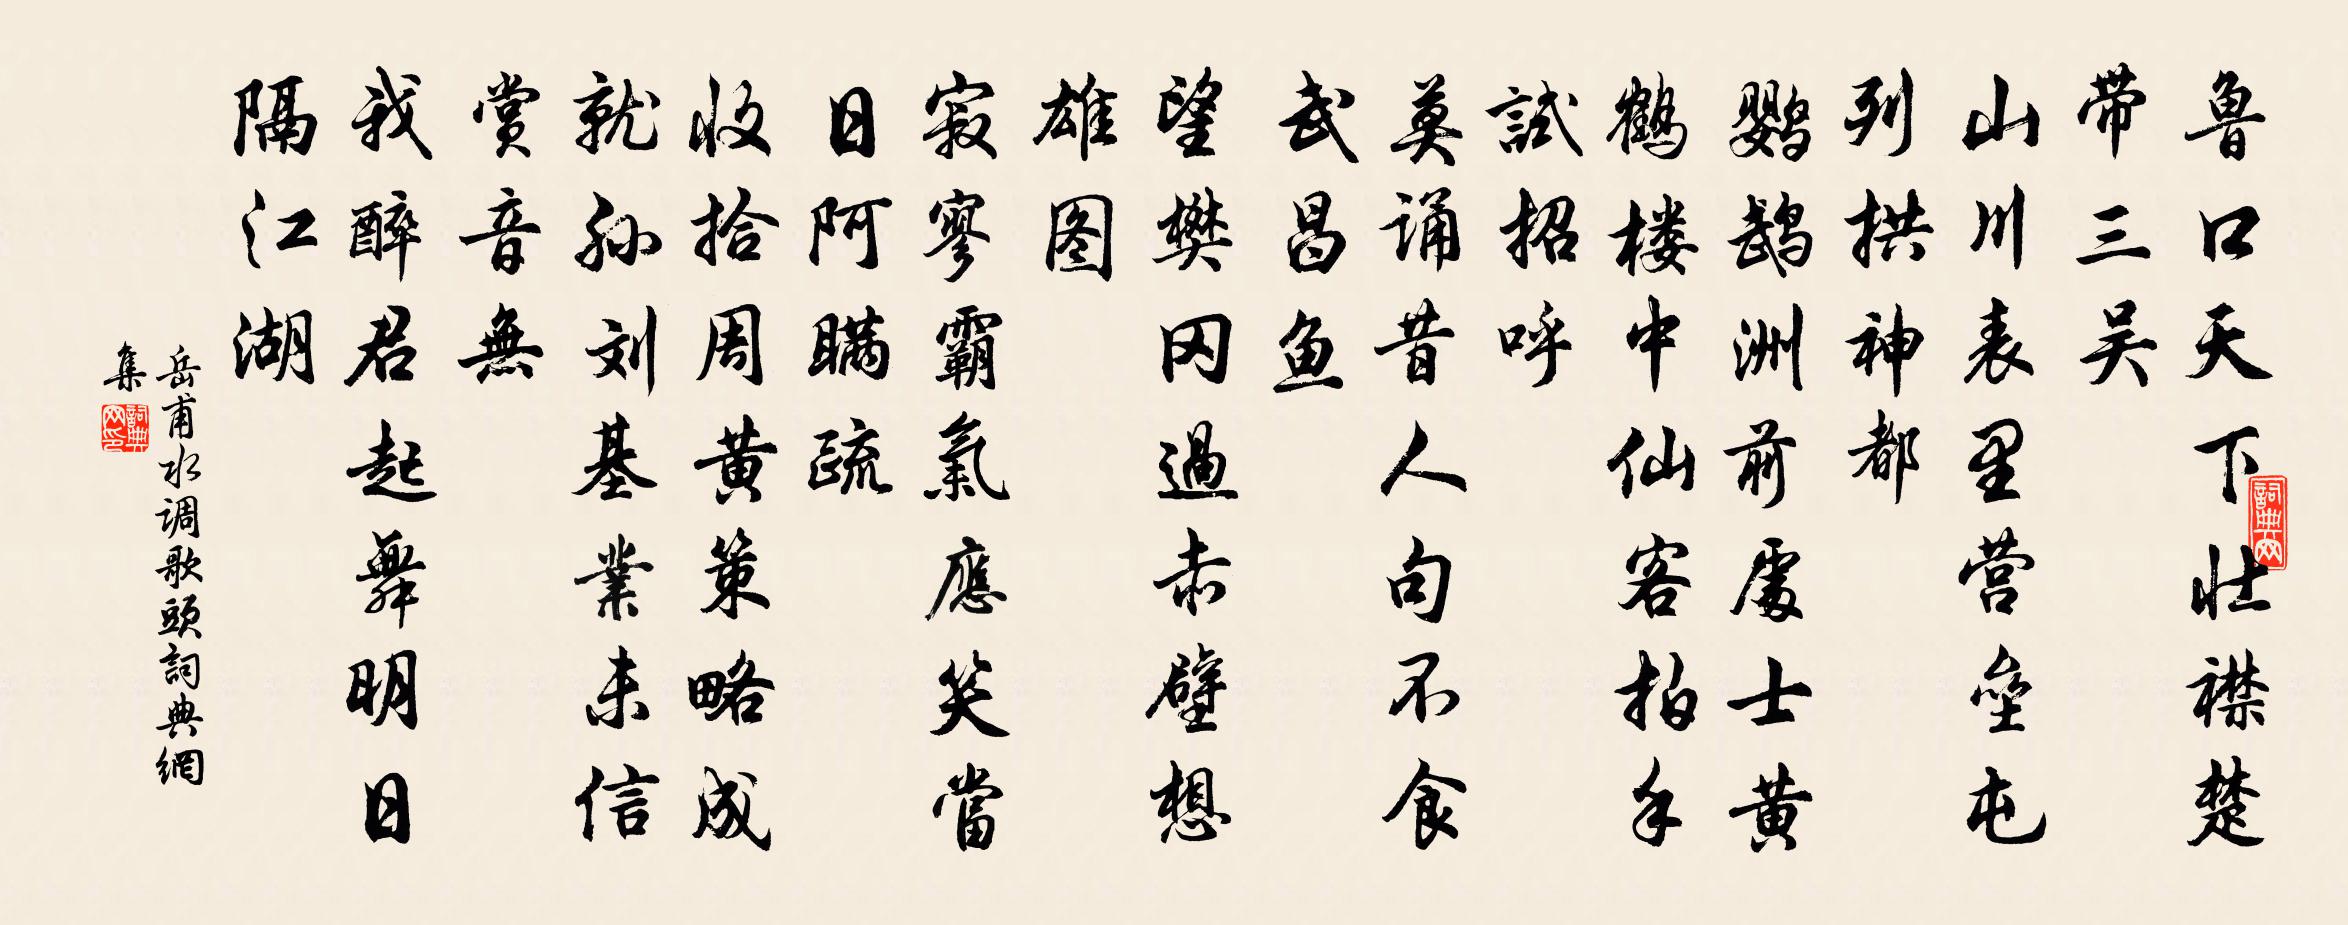 鲁口天下壮襟楚
带三吴
山川表里营垒屯
列拱神都
鹦鹉洲前處士黄
鹤楼中仙客拍手
試招呼
莫诵昔人句不食
武昌鱼
望樊冈過赤壁想
雄图
寂寥霸氣應笑當
日阿瞞疏
收拾周黄策略成
就孙刘基業未信
赏音無
我醉君起舞明日
隔江湖
岳甫水调歌頭詞典網
集
詞典网
詞典网印